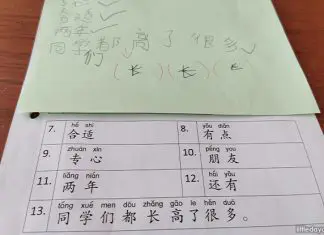 合适
两年
同学都高了很多
们 (长) (长) (长
hé shì yǒu diǎn
7. 合适 8. 有点
zhuān xīn péng you
9. 专心 10. 朋友
liǎng nián hái yǒu
11. 两年 12. 还有
tóng xué men dōu zhǎng gāo le hěn duō
13. 同学们都长高了很多。